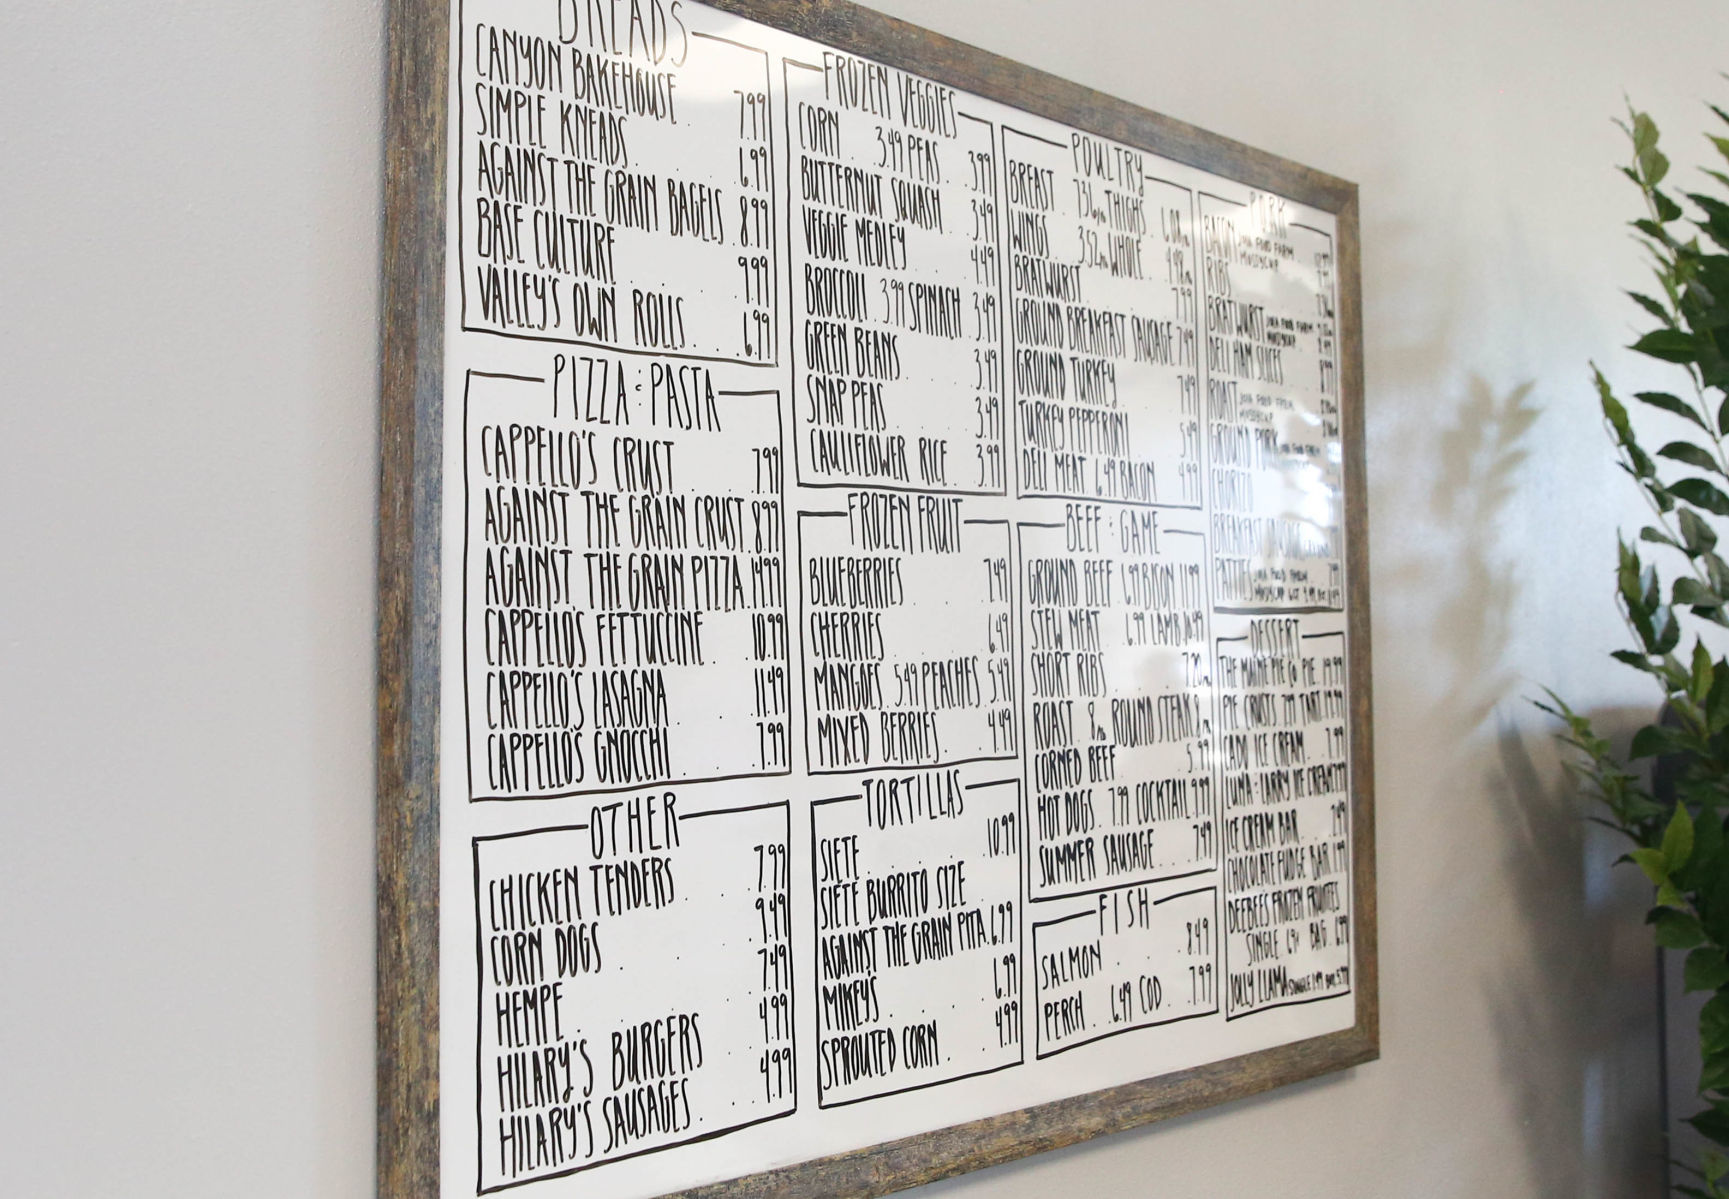 BREADS
CANYON BAKEHOUSE . 7.99
SIMPLE KNEADS . 6.99
AGAINST THE GRAIN BAGELS . 8.99
BASE CULTURE . 9.99
VALLEY'S OWN ROLLS . 6.99
PIZZA & PASTA
CAPPELLO'S CRUST . 7.99
AGAINST THE GRAIN CRUST . 8.99
AGAINST THE GRAIN PIZZA . 14.99
CAPPELLO'S FETTUCCINE . 10.99
CAPPELLO'S LASAGNA . 11.49
CAPPELLO'S GNOCCHI . 7.99
OTHER
CHICKEN TENDERS . 7.99
CORN DOGS . 9.49
HEMPE . 7.49
HILARY'S BURGERS . 4.99
HILARY'S SAUSAGES . 4.99
FROZEN VEGGIES
CORN . 3.49 PEAS . 3.99
BUTTERNUT SQUASH 3.49
VEGGIE MEDLEY . 4.49
BROCCOLI . 3.99 SPINACH . 3.49
GREEN BEANS . 3.49
SNAP PEAS . 3.49
CAULIFLOWER RICE . 3.99
FROZEN FRUIT
BLUEBERRIES . 7.49
CHERRIES . 6.49
MANGOES . 5.49 PEACHES . 5.49
MIXED BERRIES . 4.49
TORTILLAS
SIETE . 10.99
SIETE BURRITO SIZE
AGAINST THE GRAIN PITA . 6.99
MIKEY'S . 6.99
SPROUTED CORN . 4.99
POULTRY
BREAST THIGHS
WINGS WHOLE
BRATWURST . 7.99
GROUND BREAKFAST SAUSAGE 7.49
GROUND TURKEY . 7.49
TURKEY PEPPERONI . 5.49
DELI MEAT 6.49 BACON . 4.99
BEEF & GAME
GROUND BEEF 6.99 BISON 11.99
STEW MEAT . 6.99 LAMB 10.49
SHORT RIBS
ROAST ROUND STEAK
CORNED BEEF . 5.99
HOT DOGS . 7.99 COCKTAIL 9.99
SUMMER SAUSAGE . 7.49
FISH
SALMON . 8.49
PERCH . 6.49 COD . 7.99
PORK
BACON
RIBS
BRATWURST
DELI HAM SLICES
ROAST
GROUND PORK
CHORIZO
BREAKFAST SAUSAGE
PATTIES
DESSERT
THE MAINE PIE CO PIE . 19.99
PIE CRUSTS 7.99 TART 19.99
CADO ICE CREAM . 7.99
LUNA & LARRY ICE CREAM
ICE CREAM BAR . 7.49
CHOCOLATE FUDGE BAR 1.99
DEEBEE'S FROZEN FRUITEES
SINGLE BAG . 6.99
JOLLY LLAMA SINGLE